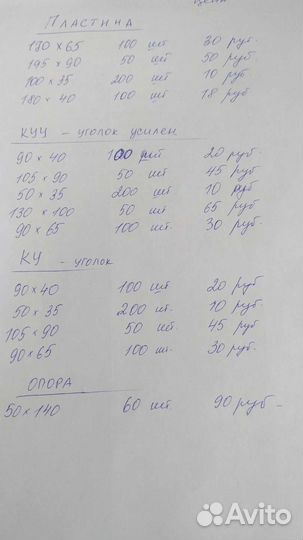 цена
Пластина
130 × 65 100 шт 30 руб.
195 × 90 50 шт 50 руб.
100 × 35 200 шт 10 руб
180 × 40 100 шт 18 руб
КУУ - уголок усилен
90 × 40 100 шт 20 руб.
105 × 90 50 шт 45 руб.
50 × 35 200 шт 10 руб
130 × 100 50 шт 65 руб
90 × 65 100 шт. 30 руб.
КУ - уголок
90 × 40 100 шт 20 руб.
50 × 35 200 шт. 10 руб.
105 × 90 50 шт. 45 руб.
90 × 65 100 шт. 30 руб.
ОПОРА
50 × 140 60 шт. 90 руб.
Avito